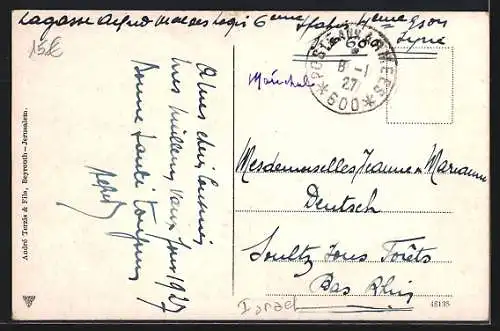 Lagasse Alfred Mal des Logis 6ème Spahis 4ème Eson
Syrie
15€
POSTE AUX ARMEES
8-1
27
*600*
Maréchal
A mes chers Cousines
mes meilleurs vœux pour 1927
Bonne santé toujours
Mesdemoiselles Jeanne & Marianne
Deutsch
Soultz sous Forêts
Bas Rhin
Israel
André Terzis & Fils, Beyrouth—Jerusalem.